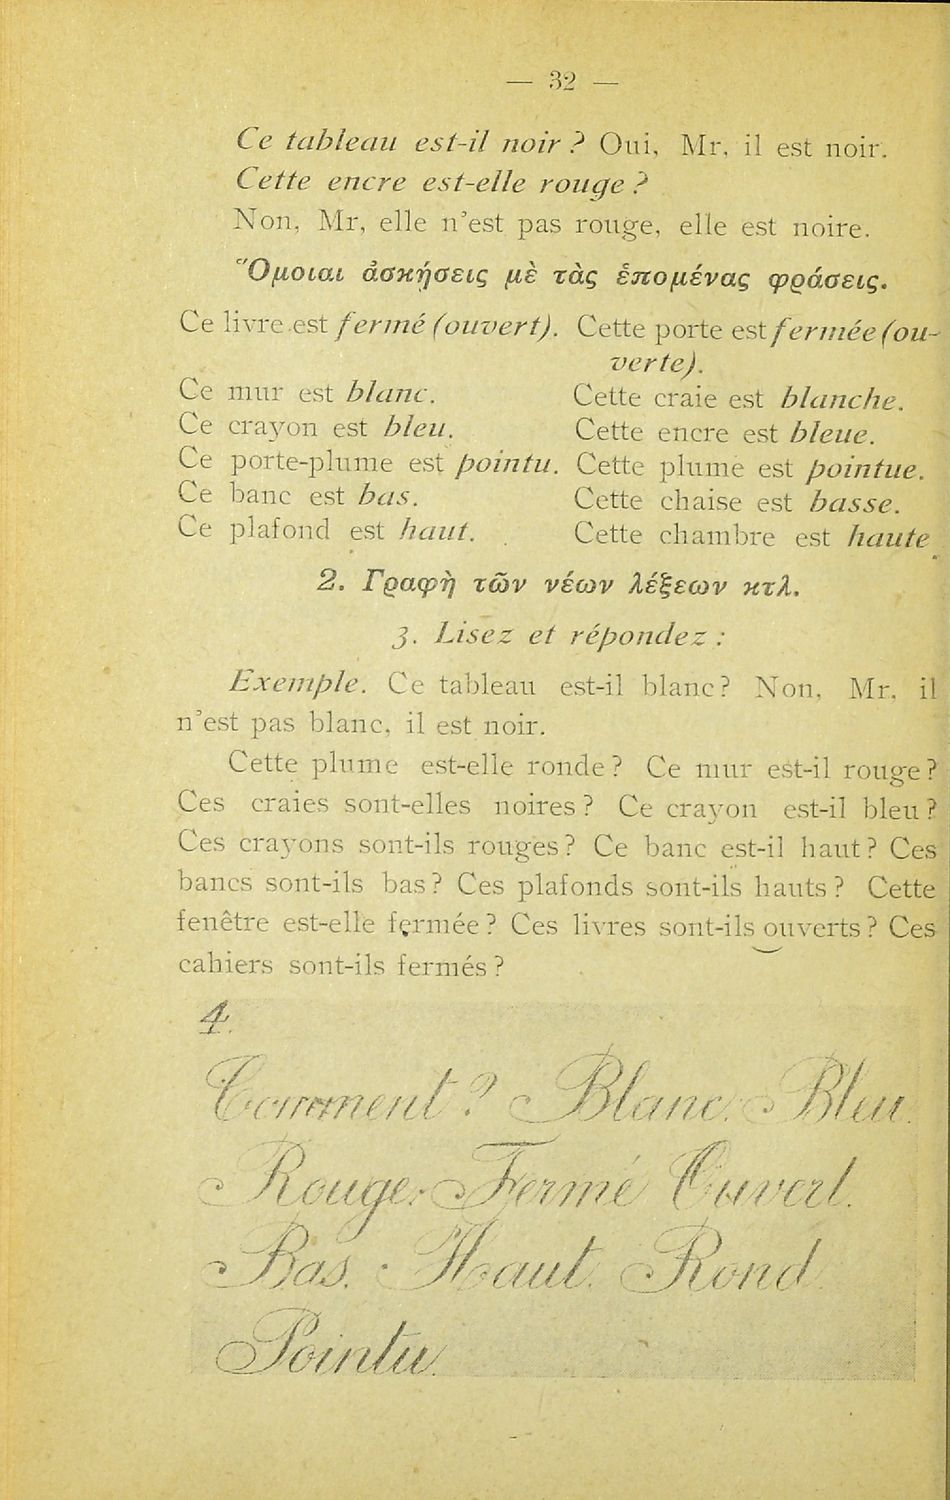 — 32 —
Ce tableau est-il noir ? Oui, Mr, il est noir.
Cette encre est-elle rouge ?
Non, Mr, elle n'est pas rouge, elle est noire.
Ὅμοιαι ἀσκήσεις μὲ τὰς ἑπομένας φράσεις.
Ce livre est fermé (ouvert). Cette porte est fermée (ou-
verte).
Ce mur est blanc. Cette craie est blanche.
Ce crayon est bleu. Cette encre est bleue.
Ce porte-plume est pointu. Cette plume est pointue.
Ce banc est bas. Cette chaise est basse.
Ce plafond est haut. Cette chambre est haute.
2. Γραφὴ τῶν νέων λέξεων κτλ.
3. Lisez et répondez :
Exemple. Ce tableau est-il blanc? Non, Mr, il
n'est pas blanc, il est noir.
Cette plume est-elle ronde ? Ce mur est-il rouge ?
Ces craies sont-elles noires ? Ce crayon est-il bleu ?
Ces crayons sont-ils rouges ? Ce banc est-il haut ? Ces
bancs sont-ils bas ? Ces plafonds sont-ils hauts ? Cette
fenêtre est-elle fermée ? Ces livres sont-ils ouverts ? Ces
cahiers sont-ils fermés ?
4.
Comment ? Blanc. Bleu.
Rouge. Fermé Ouvert.
Bas. Haut. Rond.
Pointu.